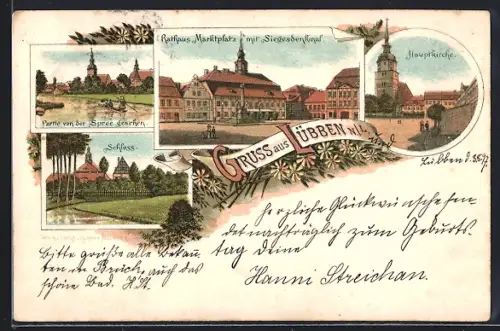 Rathaus, Marktplatz mit Siegesdenkmal.
Hauptkirche.
Partie von der Spree gesehen.
Schloss.
GRUSS aus LÜBBEN N/L.
Lübben d.
Herzliche Glückwünsche sen
det nachträglich zum Geburts
tag deine
Hanni Streichan.
Bitte grüße alle Bekan
ten im Bruch, auch das
schöne Bad. H. St.